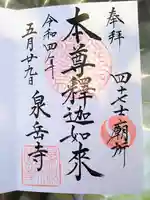 奉拝
四十七士廟所
本尊釋迦如來
令和四年
五月廿九日
泉岳寺